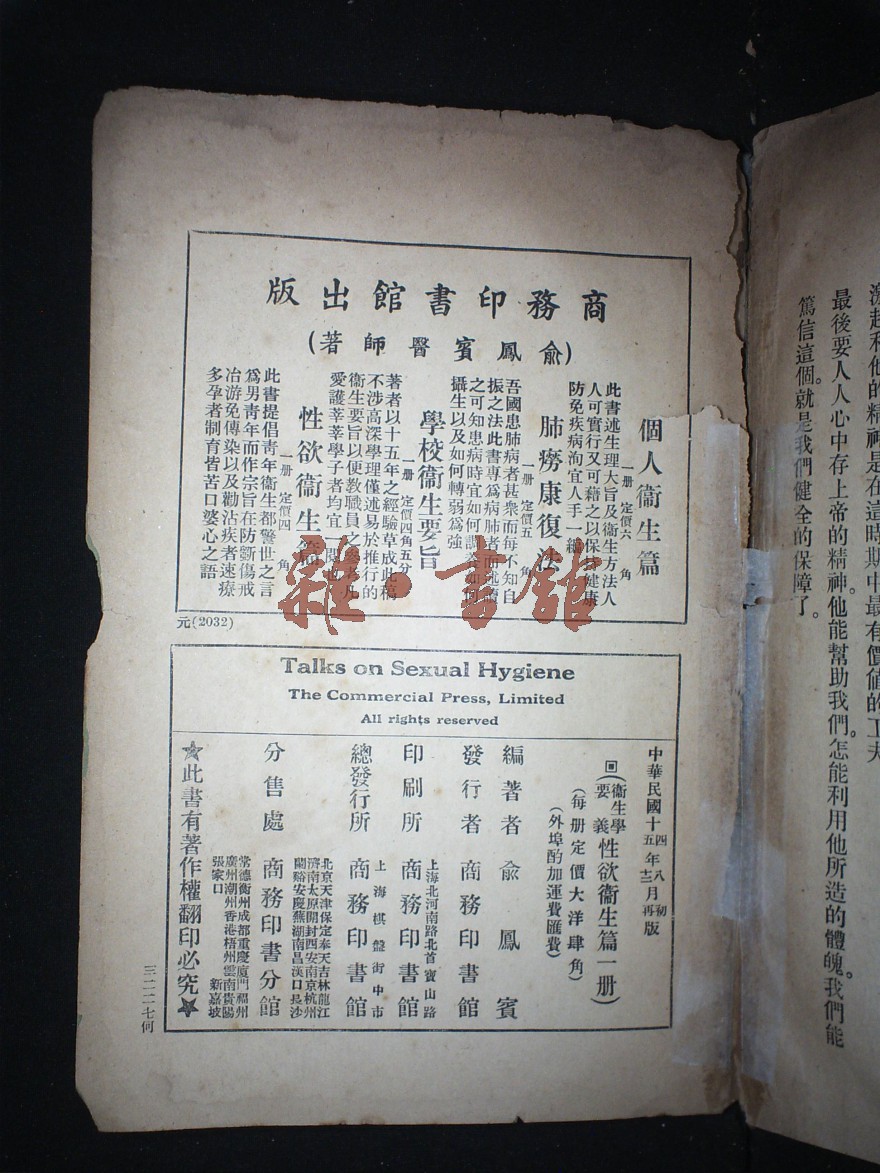 激起和他的精神是在這時期中最有價値的工夫
最後要人人心中存上帝的精神他能幫助我們。怎能利用他所造的體魄。我們能
篤信這個。就是我們健全的保障了。
商務印書館出版
(俞鳳賓醫師著)
個人衞生篇
一册 定價六角
此書述生理大旨及衞生方法人
人可實行又可藉之以保健康
防免疾病洵宜人手一編
肺癆康復法
一册 定價五角
吾國患肺病者甚衆而每不知自
振之法此書專爲病肺者而述讀
之可知患病時宜如何調養如何
攝生以及如何轉弱爲強
學校衞生要旨
一册 定價四角五分
著者以十五年之經驗草成此稿
不涉高深學理僅述易於推行的
衞生要旨以便敎職員之參考凡
愛護莘莘學子者均宜一閱也
性欲衞生篇
一册 定價四角
此書提倡靑年衞生都警世之言
爲男靑年而作宗旨在防斲傷戒
冶游免傳染以及勸沾疾者速療
多孕者制育皆苦口婆心之語
元(2032)
雜·書館
Talks on Sexual Hygiene
The Commercial Press, Limited
All rights reserved
中華民國十四年八月初版
五年十二月再版
(衞生學要義性欲衞生篇一册)
(每册定價大洋肆角)
(外埠酌加運費匯費)
編著者 俞鳳賓
發行者 商務印書館
上海北河南路北首寶山路
印刷所 商務印書館
上海棋盤街中市
總發行所 商務印書館
北京天津保定奉天吉林龍江
濟南太原開封西安南京杭州
蘭谿安慶蕪湖南昌漢口長沙
分售處 商務印書分館
常德衡州成都重慶廈門福州
廣州潮州香港梧州雲南貴陽
張家口 新嘉坡
★此書有著作權翻印必究★
三二二七何